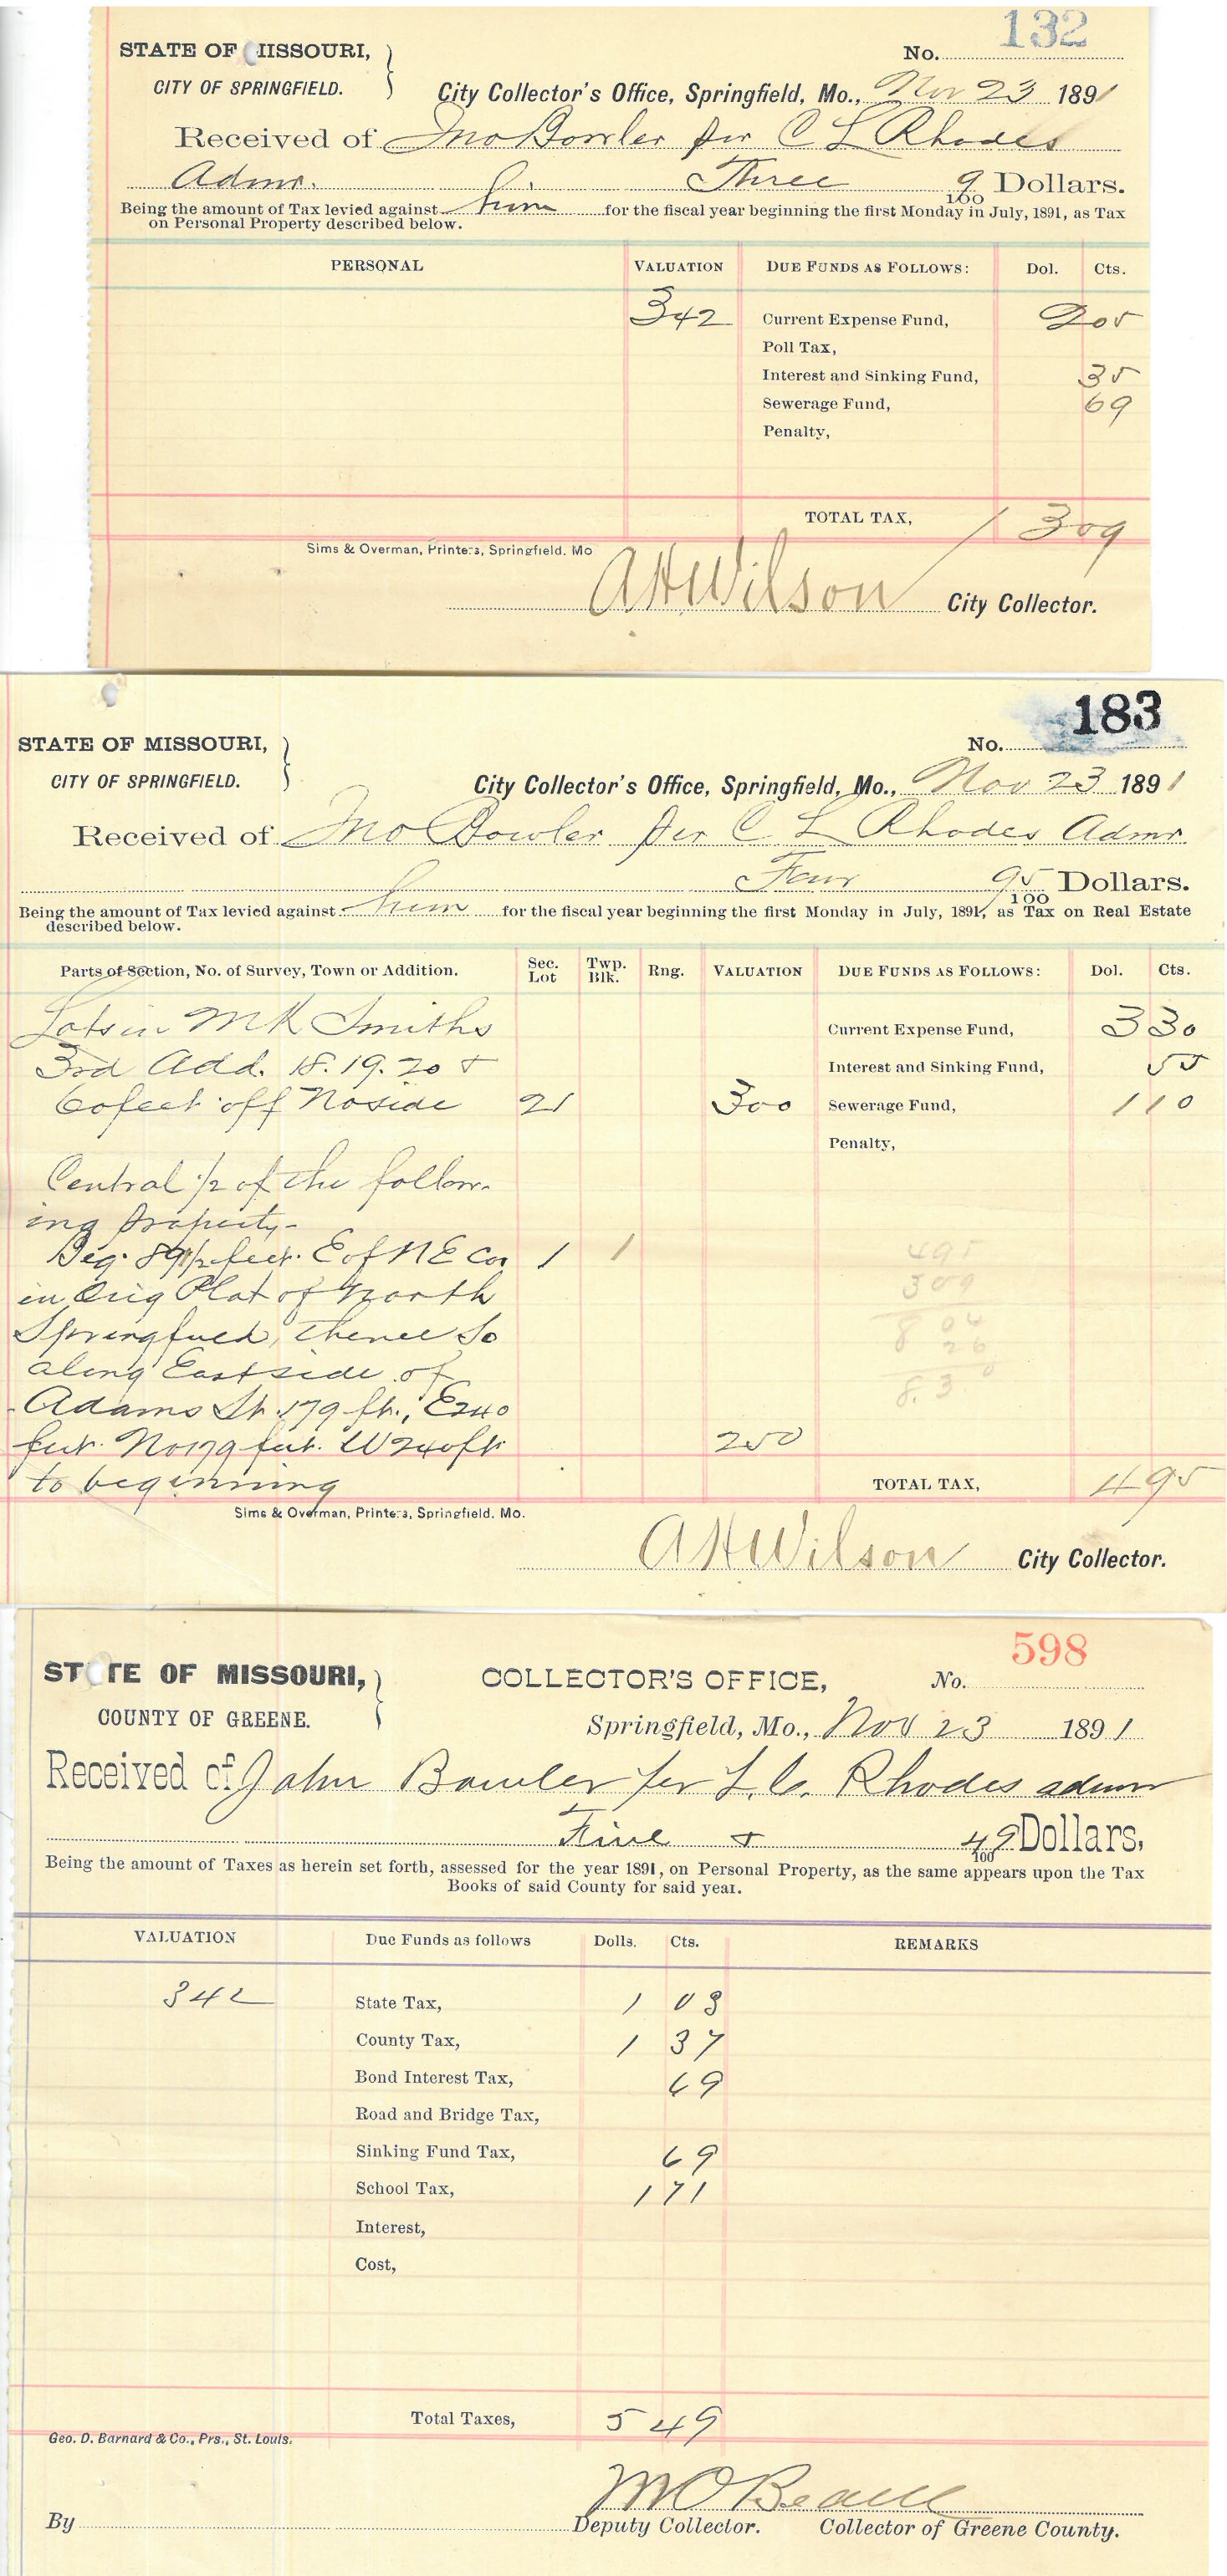 132
STATE OF MISSOURI, No.
CITY OF SPRINGFIELD. City Collector's Office, Springfield, Mo., Nov 23 1891
Received of Jno Bowler per C L Rhodes
Admr. Three 9/100 Dollars.
Being the amount of Tax levied against him for the fiscal year beginning the first Monday in July, 1891, as Tax
on Personal Property described below.
PERSONAL VALUATION DUE FUNDS AS FOLLOWS: Dol. Cts.
342 Current Expense Fund, 2 05
Poll Tax,
Interest and Sinking Fund, 35
Sewerage Fund, 69
Penalty,
TOTAL TAX, 3 09
Sims & Overman, Printers, Springfield. Mo
A H Wilson City Collector.
183
STATE OF MISSOURI, No.
CITY OF SPRINGFIELD. City Collector's Office, Springfield, Mo., Nov 23 1891
Received of Jno Bowler per C L Rhodes Admr
Four 95/100 Dollars.
Being the amount of Tax levied against him for the fiscal year beginning the first Monday in July, 1891, as Tax on Real Estate
described below.
Parts of Section, No. of Survey, Town or Addition. Sec. Lot Twp. Blk. Rng. VALUATION DUE FUNDS AS FOLLOWS: Dol. Cts.
Lots in M K Smiths Current Expense Fund, 3 30
3rd Add. 18. 19. 20 & Interest and Sinking Fund, 55
60 feet off No side 21 300 Sewerage Fund, 1 10
Penalty,
Central 1/2 of the follow-
ing property-
Beg. 89 1/2 feet. E of N E Cor 1 1 495
in Orig Plat of North 309
Springfield, thence So 8 04
along East side of 26
Adams St. 179 ft., E 240 8.30
feet. No 179 feet. W 240 ft 250
to beginning TOTAL TAX, 4 95
Sims & Overman, Printers, Springfield. Mo.
A H Wilson City Collector.
598
STATE OF MISSOURI, COLLECTOR'S OFFICE, No.
COUNTY OF GREENE. Springfield, Mo., Nov 23 1891
Received of John Bowler per L. C. Rhodes admr
Five & 49/100 Dollars,
Being the amount of Taxes as herein set forth, assessed for the year 1891, on Personal Property, as the same appears upon the Tax
Books of said County for said year.
VALUATION Due Funds as follows Dolls. Cts. REMARKS
342 State Tax, 1 03
County Tax, 1 37
Bond Interest Tax, 69
Road and Bridge Tax,
Sinking Fund Tax, 69
School Tax, 1 71
Interest,
Cost,
Total Taxes, 5 49
Geo. D. Barnard & Co., Prs., St. Louis.
M O Beall
By Deputy Collector. Collector of Greene County.